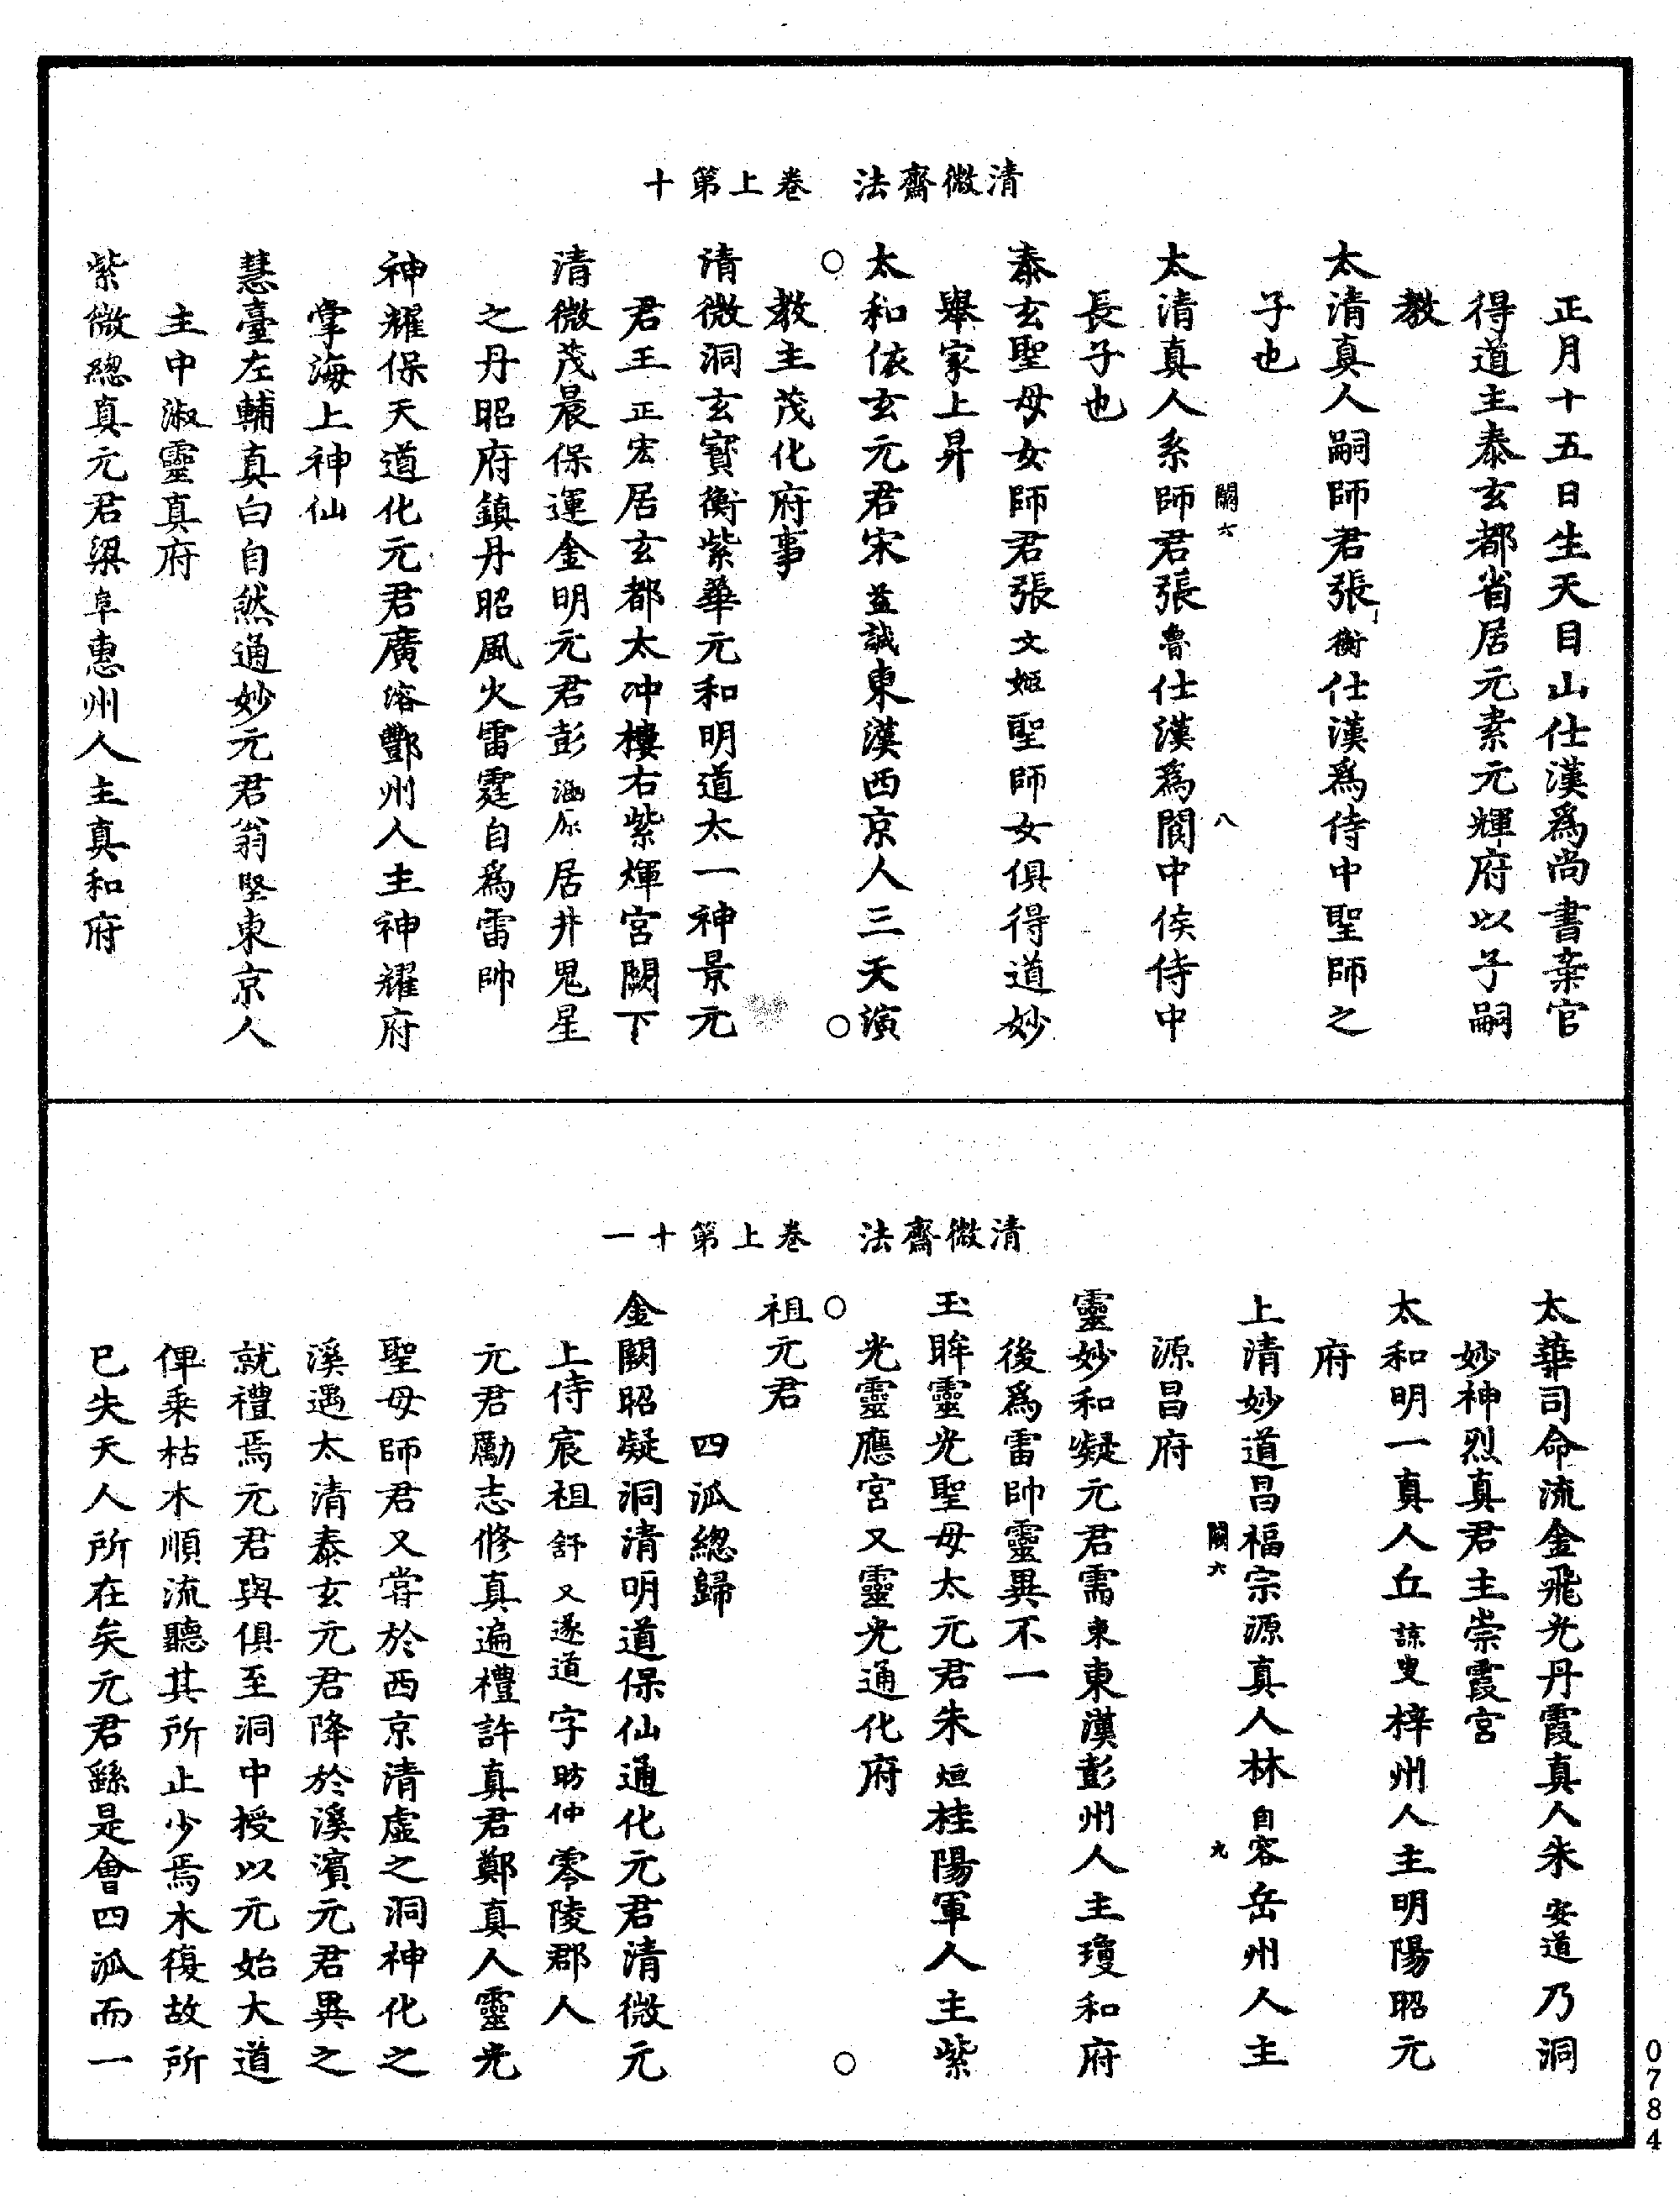 清微齋法　卷上第十
正月十五日生天目山仕漢為尚書棄官
得道主泰玄都省居元素元輝府以子嗣
教
太清真人嗣師君張衡仕漢為侍中聖師之
子也
闕六　八
太清真人系師君張魯仕漢為閬中侯侍中
長子也
泰玄聖母女師君張文姬聖師女俱得道妙
舉家上昇
太和依玄元君宋益誠東漢西京人三天演
教主茂化府事
清微洞玄寶衡紫華元和明道太一神景元
君王正宏居玄都太冲樓右紫煇宮闕下
清微茂晨保運金明元君彭海原居井鬼星
之丹昭府鎮丹昭風火雷霆自為雷帥
神耀保天道化元君廣溶酆州人主神耀府
掌海上神仙
慧臺左輔真白自然通妙元君翁堅東京人
主中淑靈真府
紫微總真元君梁阜惠州人主真和府
清微齋法　卷上第十一
太華司命流金飛光丹霞真人朱安道乃洞
妙神烈真君主崇霞宮
太和明一真人丘諒叟梓州人主明陽昭元
府
上清妙道昌福宗源真人林自容岳州人主
闕六　九
源昌府
靈妙和凝元君需東東漢彭州人主瓊和府
後為雷帥靈異不一
玉眸靈光聖母太元君朱烜桂陽軍人主紫
光靈應宮又靈光通化府
祖元君
四派總歸
金闕昭凝洞清明道保仙通化元君清微元
上侍宸祖舒又遂道字昉仲零陵郡人
元君勵志修真遍禮許真君鄭真人靈光
聖母師君又嘗於西京清虛之洞神化之
溪遇太清泰玄元君降於溪濱元君異之
就禮焉元君與俱至洞中授以元始大道
俾乘枯木順流聽其所止少焉木復故所
已失天人所在矣元君繇是會四派而一
0784